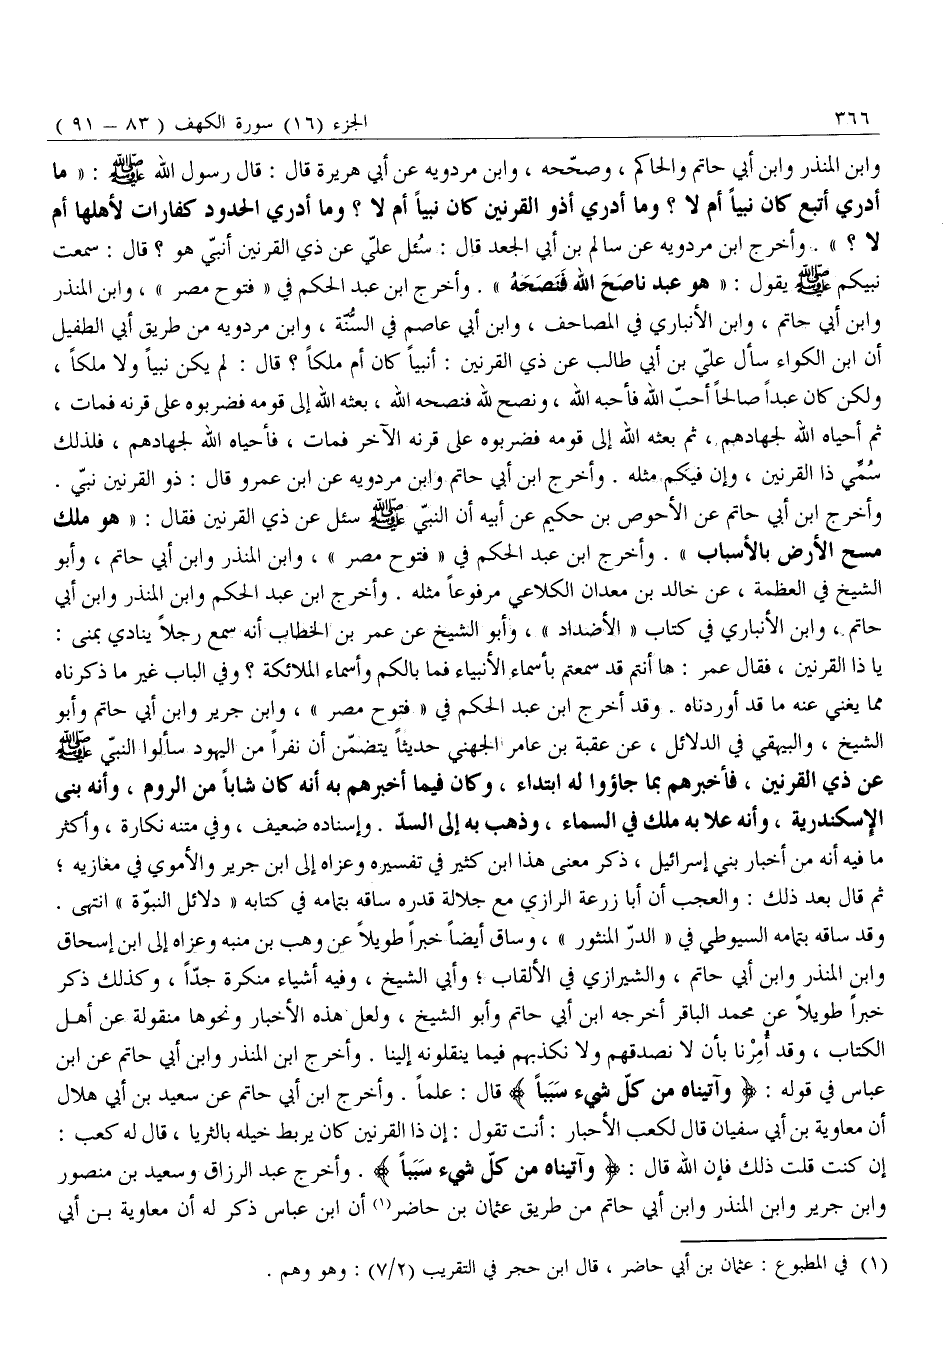 ٣٦٦ الجزء (١٦) سورة الكهف ( ٨٣ – ٩١ )
وابن المنذر وابن أبي حاتم والحاكم ، وصحّحه ، وابن مردويه عن أبي هريرة قال : قال رسول الله ﷺ : « ما
أدري أتبع كان نبياً أم لا ؟ وما أدري أذو القرنين كان نبياً أم لا ؟ وما أدري الحدود كفارات لأهلها أم
لا ؟ » . وأخرج ابن مردويه عن سالم بن أبي الجعد قال : سُئل عليّ عن ذي القرنين أنبيّ هو ؟ قال : سمعت
نبيكم ﷺ يقول : « هو عبد ناصَحَ الله فَنَصَحَهُ » . وأخرج ابن عبد الحكم في « فتوح مصر » ، وابن المنذر
وابن أبي حاتم ، وابن الأنباري في المصاحف ، وابن أبي عاصم في السُّنّة ، وابن مردويه من طريق أبي الطفيل
أن ابن الكواء سأل عليّ بن أبي طالب عن ذي القرنين : أنبياً كان أم ملكاً ؟ قال : لم يكن نبياً ولا ملكاً ،
ولكن كان عبداً صالحاً أحبّ الله فأحبه الله ، ونصح لله فنصحه الله ، بعثه الله إلى قومه فضربوه على قرنه فمات ،
ثم أحياه الله لجهادهم ، ثم بعثه الله إلى قومه فضربوه على قرنه الآخر فمات ، فأحياه الله لجهادهم ، فلذلك
سُمِّي ذا القرنين ، وإن فيكم مثله . وأخرج ابن أبي حاتم وابن مردويه عن ابن عمرو قال : ذو القرنين نبيّ .
وأخرج ابن أبي حاتم عن الأحوص بن حكيم عن أبيه أن النبيّ ﷺ سئل عن ذي القرنين فقال : « هو ملك
مسح الأرض بالأسباب » . وأخرج ابن عبد الحكم في « فتوح مصر » ، وابن المنذر وابن أبي حاتم ، وأبو
الشيخ في العظمة ، عن خالد بن معدان الكلاعي مرفوعاً مثله . وأخرج ابن عبد الحكم وابن المنذر وابن أبي
حاتم ، وابن الأنباري في كتاب « الأضداد » ، وأبو الشيخ عن عمر بن الخطاب أنه سمع رجلاً ينادي بمنى :
يا ذا القرنين ، فقال عمر : ها أنتم قد سمعتم بأسماء الأنبياء فما بالكم وأسماء الملائكة ؟ وفي الباب غير ما ذكرناه
مما يغني عنه ما قد أوردناه . وقد أخرج ابن عبد الحكم في « فتوح مصر » ، وابن جرير وابن أبي حاتم وأبو
الشيخ ، والبيهقي في الدلائل ، عن عقبة بن عامر الجهني حديثاً يتضمّن أن نفراً من اليهود سألوا النبيّ ﷺ
عن ذي القرنين ، فأخبرهم بما جاؤوا له ابتداء ، وكان فيما أخبرهم به أنه كان شاباً من الروم ، وأنه بنى
الإسكندرية ، وأنه علا به ملك في السماء ، وذهب به إلى السدّ . وإسناده ضعيف ، وفي متنه نكارة ، وأكثر
ما فيه أنه من أخبار بني إسرائيل ، ذكر معنى هذا ابن كثير في تفسيره وعزاه إلى ابن جرير والأموي في مغازيه ؛
ثم قال بعد ذلك : والعجب أن أبا زرعة الرازي مع جلالة قدره ساقه بتمامه في كتابه « دلائل النبوّة » انتهى .
وقد ساقه بتمامه السيوطي في « الدرّ المنثور » ، وساق أيضاً خبراً طويلاً عن وهب بن منبه وعزاه إلى ابن إسحاق
وابن المنذر وابن أبي حاتم ، والشيرازي في الألقاب ؛ وأبي الشيخ ، وفيه أشياء منكرة جدّاً ، وكذلك ذكر
خبراً طويلاً عن محمد الباقر أخرجه ابن أبي حاتم وأبو الشيخ ، ولعل هذه الأخبار ونحوها منقولة عن أهل
الكتاب ، وقد أُمِرْنا بأن لا نصدقهم ولا نكذبهم فيما ينقلونه إلينا . وأخرج ابن المنذر وابن أبي حاتم عن ابن
عباس في قوله : ﴿ وآتيناه من كلّ شيء سَبَباً ﴾ قال : علماً . وأخرج ابن أبي حاتم عن سعيد بن أبي هلال
أن معاوية بن أبي سفيان قال لكعب الأحبار : أنت تقول : إن ذا القرنين كان يربط خيله بالثريا ، قال له كعب :
إن كنت قلت ذلك فإن الله قال : ﴿ وآتيناه من كلّ شيء سَبَباً ﴾ . وأخرج عبد الرزاق وسعيد بن منصور
وابن جرير وابن المنذر وابن أبي حاتم من طريق عثمان بن حاضر(١) أن ابن عباس ذكر له أن معاوية بن أبي
(١) في المطبوع : عثمان بن أبي حاضر ، قال ابن حجر في التقريب (٧/٢) : وهو وهم .